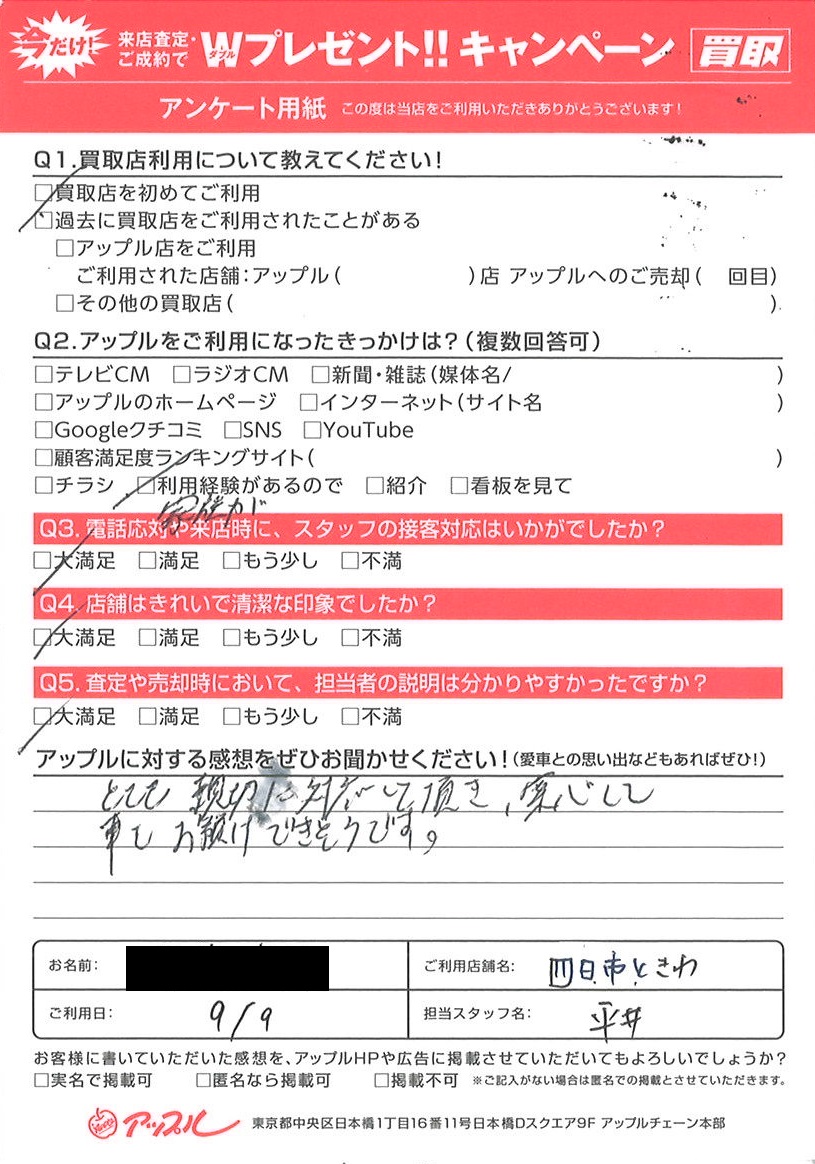 今だけ!
来店査定・ご成約で Wダブルプレゼント!! キャンペーン 買取
アンケート用紙 この度は当店をご利用いただきありがとうございます!
Q1.買取店利用について教えてください!
□買取店を初めてご利用
□過去に買取店をご利用されたことがある
□アップル店をご利用
ご利用された店舗:アップル( )店 アップルへのご売却( 回目)
□その他の買取店( )
Q2.アップルをご利用になったきっかけは?(複数回答可)
□テレビCM □ラジオCM □新聞・雑誌(媒体名/ )
□アップルのホームページ □インターネット(サイト名 )
□Googleクチコミ □SNS □YouTube
□顧客満足度ランキングサイト( )
□チラシ □利用経験があるので □紹介 □看板を見て
家族が
Q3.電話応対や来店時に、スタッフの接客対応はいかがでしたか?
□大満足 □満足 □もう少し □不満
Q4.店舗はきれいで清潔な印象でしたか?
□大満足 □満足 □もう少し □不満
Q5.査定や売却時において、担当者の説明は分かりやすかったですか?
□大満足 □満足 □もう少し □不満
アップルに対する感想をぜひお聞かせください!(愛車との思い出などもあればぜひ!)
とても 親切に対応して頂き、安心して
車も お預けできそうです。
お名前: ご利用店舗名: 四日市ときわ
ご利用日: 9/9 担当スタッフ名: 平井
お客様に書いていただいた感想を、アップルHPや広告に掲載させていただいてもよろしいでしょうか?
□実名で掲載可 □匿名なら掲載可 □掲載不可 ※ご記入がない場合は匿名での掲載とさせていただきます。
アップル 東京都中央区日本橋1丁目16番11号日本橋Dスクエア9F アップルチェーン本部